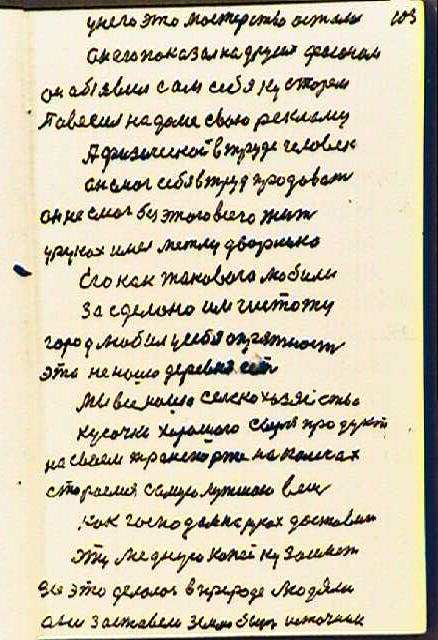 103
у него это мостерство остали
он его показал на других фасонам
он абявил сам себя кусторем
Павесил на доме свою рекламу
А физической в труде человек
он смог себя в труд продовать
он не смог без этого всего жит
у руках имел метлу дворника
Его как такового любили
За сделано им чистоту
город любил у себя опрятност
это не нашо деревня
Мы все нашо селскохозяйство
кусочки хорошого сыра продукт
на своем транспорте на колесах
стораемся самую лутшаю вещ
как господам на руках доставит
Эту медную копейку Заимет
Все это делолос в природе людями